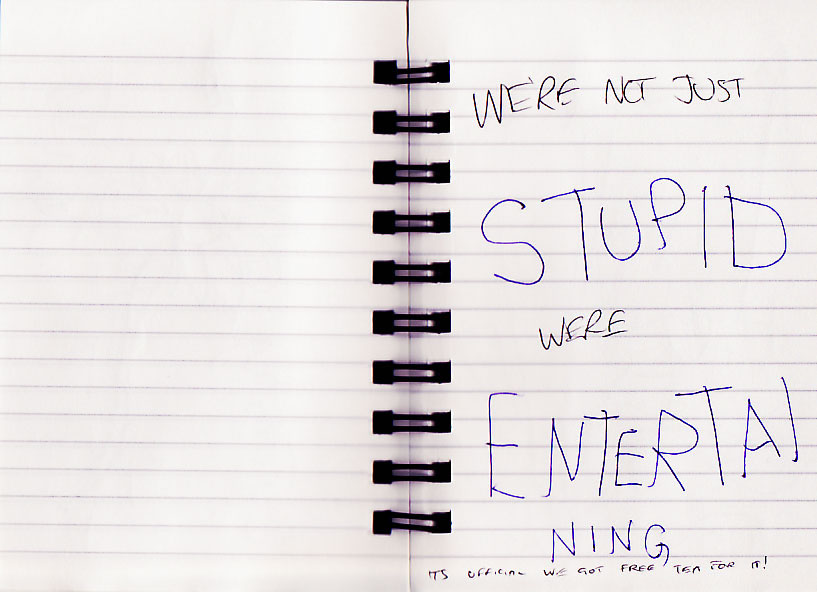 WE'RE NOT JUST
STUPID
WERE
ENTERTAI
NING
ITS OFFICIAL WE GOT FREE TEA FOR IT!